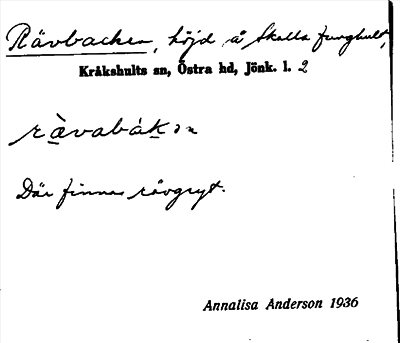 Rävbacken, höjd å Skalla Ljunghult,
Kråkshults sn, Östra hd, Jönk. l. 2
ràvabákən
Där finnes rävgryt.
Annalisa Anderson 1936